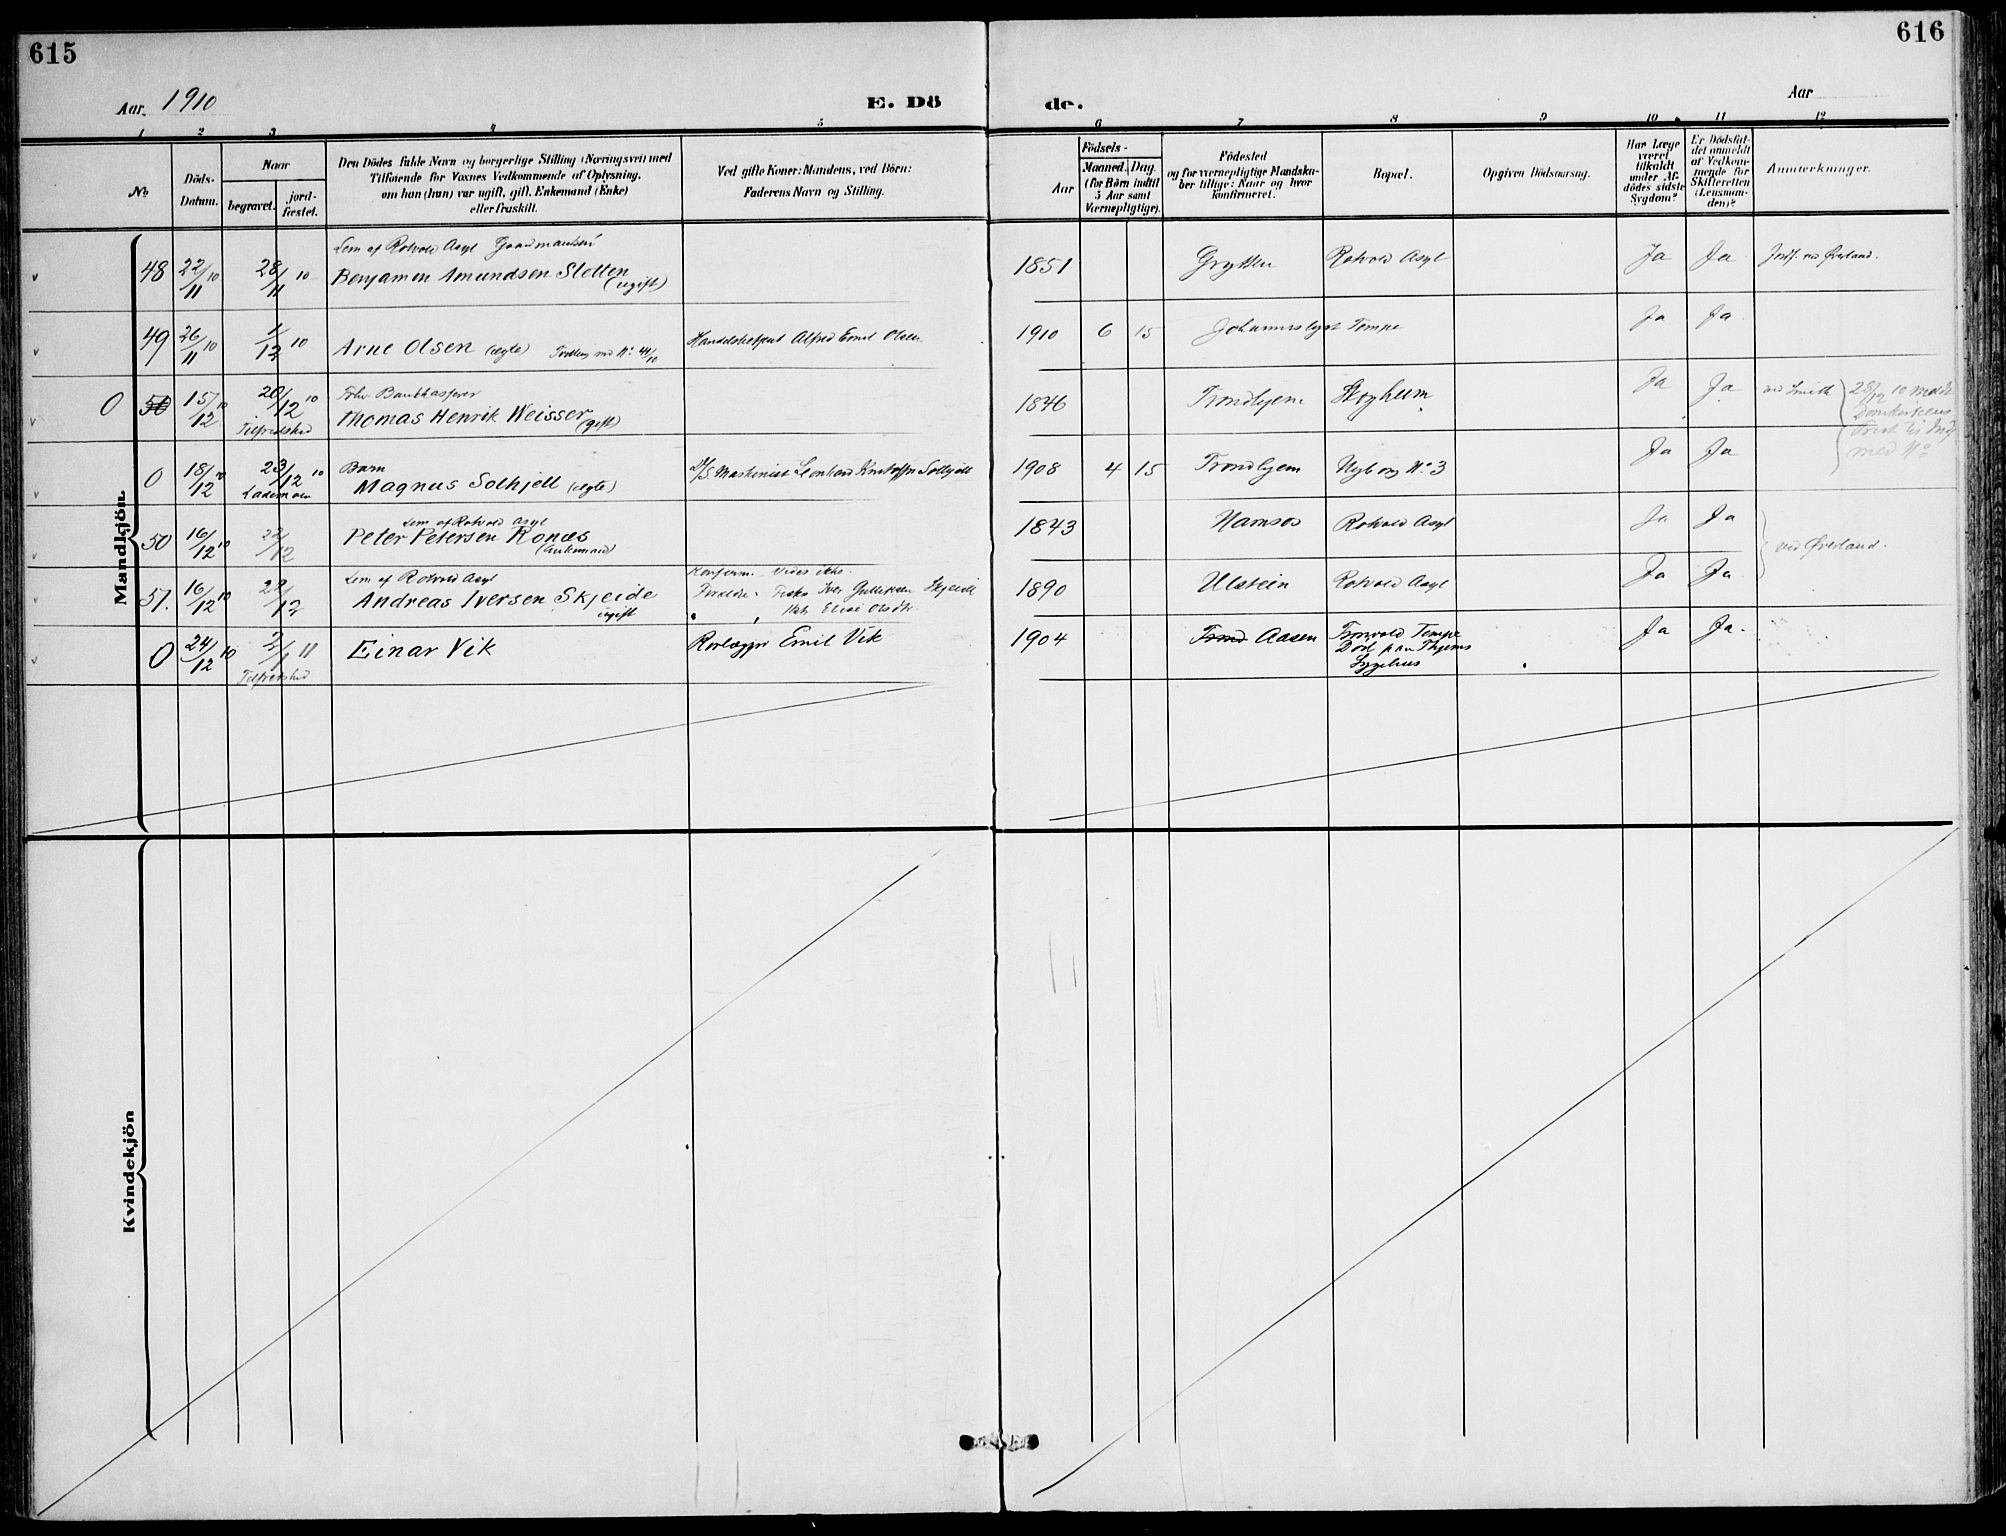 615
616
Aar 1910
E. Dö
de.
Aar
1 2 3 4 5 6 7 8 9 10 11 12
No
Döds-
Datum.
Naar
begravet.
jord-
fæstet.
Den Dödes fulde Navn og borgerlige Stilling (Næringsvei) med
Tilføiende for Voxnes Vedkommende af Oplysning,
om han (hun) var ugift, gift, Enkemand (Enke)
eller fraskilt.
Ved gifte Koner: Mandens, ved Börn:
Faderens Navn og Stilling.
Aar
Födsels-
Maaned. Dag.
(for Børn indtil
5 Aar samt
Værnepligtige).
Födested
og for værnepligtige Mandska-
ber tillige: Naar og hvor
konfirmeret.
Bopæl.
Opgiven Dödsaarsag.
Har Læge
været
tilkaldt
under Af-
dödes sidste
Sygdom?
Er Dödsfal-
det anmeldt
af Vedkom-
mende for
Skifteretten
(Lensman-
den)?
Anmerkninger.
Mandkjön.
Lem af Rotvold Asyl
48 22/11 10 28/11 10 Benjamen Amundsen Sletten 1851 Grytten Rotvold Asyl Ja Ja Indf. ved Øverland.
(ugift)
49 26/11 10 1/12 10 Arne Olsen (ægte) Tvilling med No 44/10 Alfred Emil Olsen 1910 6 15 Johanneslyst Tempe Ja Ja
Fhv Bankkasserer
0 50 15/12 10 20/12 10 Thomas Henrik Weisser (gift) 1846 Trondhjem Skogheim Ja Ja ved Smith 28/12 10 meldt
Tilfredshed
Domkirkens
med No
Barn
0 18/12 10 23/12 10 Magnus Solhjell (ægte) D/S. Maskinist Leonhard Solhjell 1908 4 15 Trondhjem Nyborg No 3 Ja Ja
Lademoen
Lem af Rotvold Asyl
50 16/12 10 22/12 Peter Petersen Ronæs 1843 Namsos Rotvold Asyl Ja Ja ved Øverland.
(enkemand)
Lem af Rotvold Asyl Konfirm. vides ikke.
51. 16/12 10 22/12 Andreas Iversen Skjeide Forældre: Iver Gulliksen Skjeide 1890 Ulstein Rotvold Asyl Ja Ja
ugift Elise Olsdtr
0 24/12 10 2/1 11 Einar Vik Rørlægger Emil Vik 1904 Trond Aasen Tempe Ja Ja.
Tilfredshed
Död paa Thjems
Sygehus
Kvindekjön